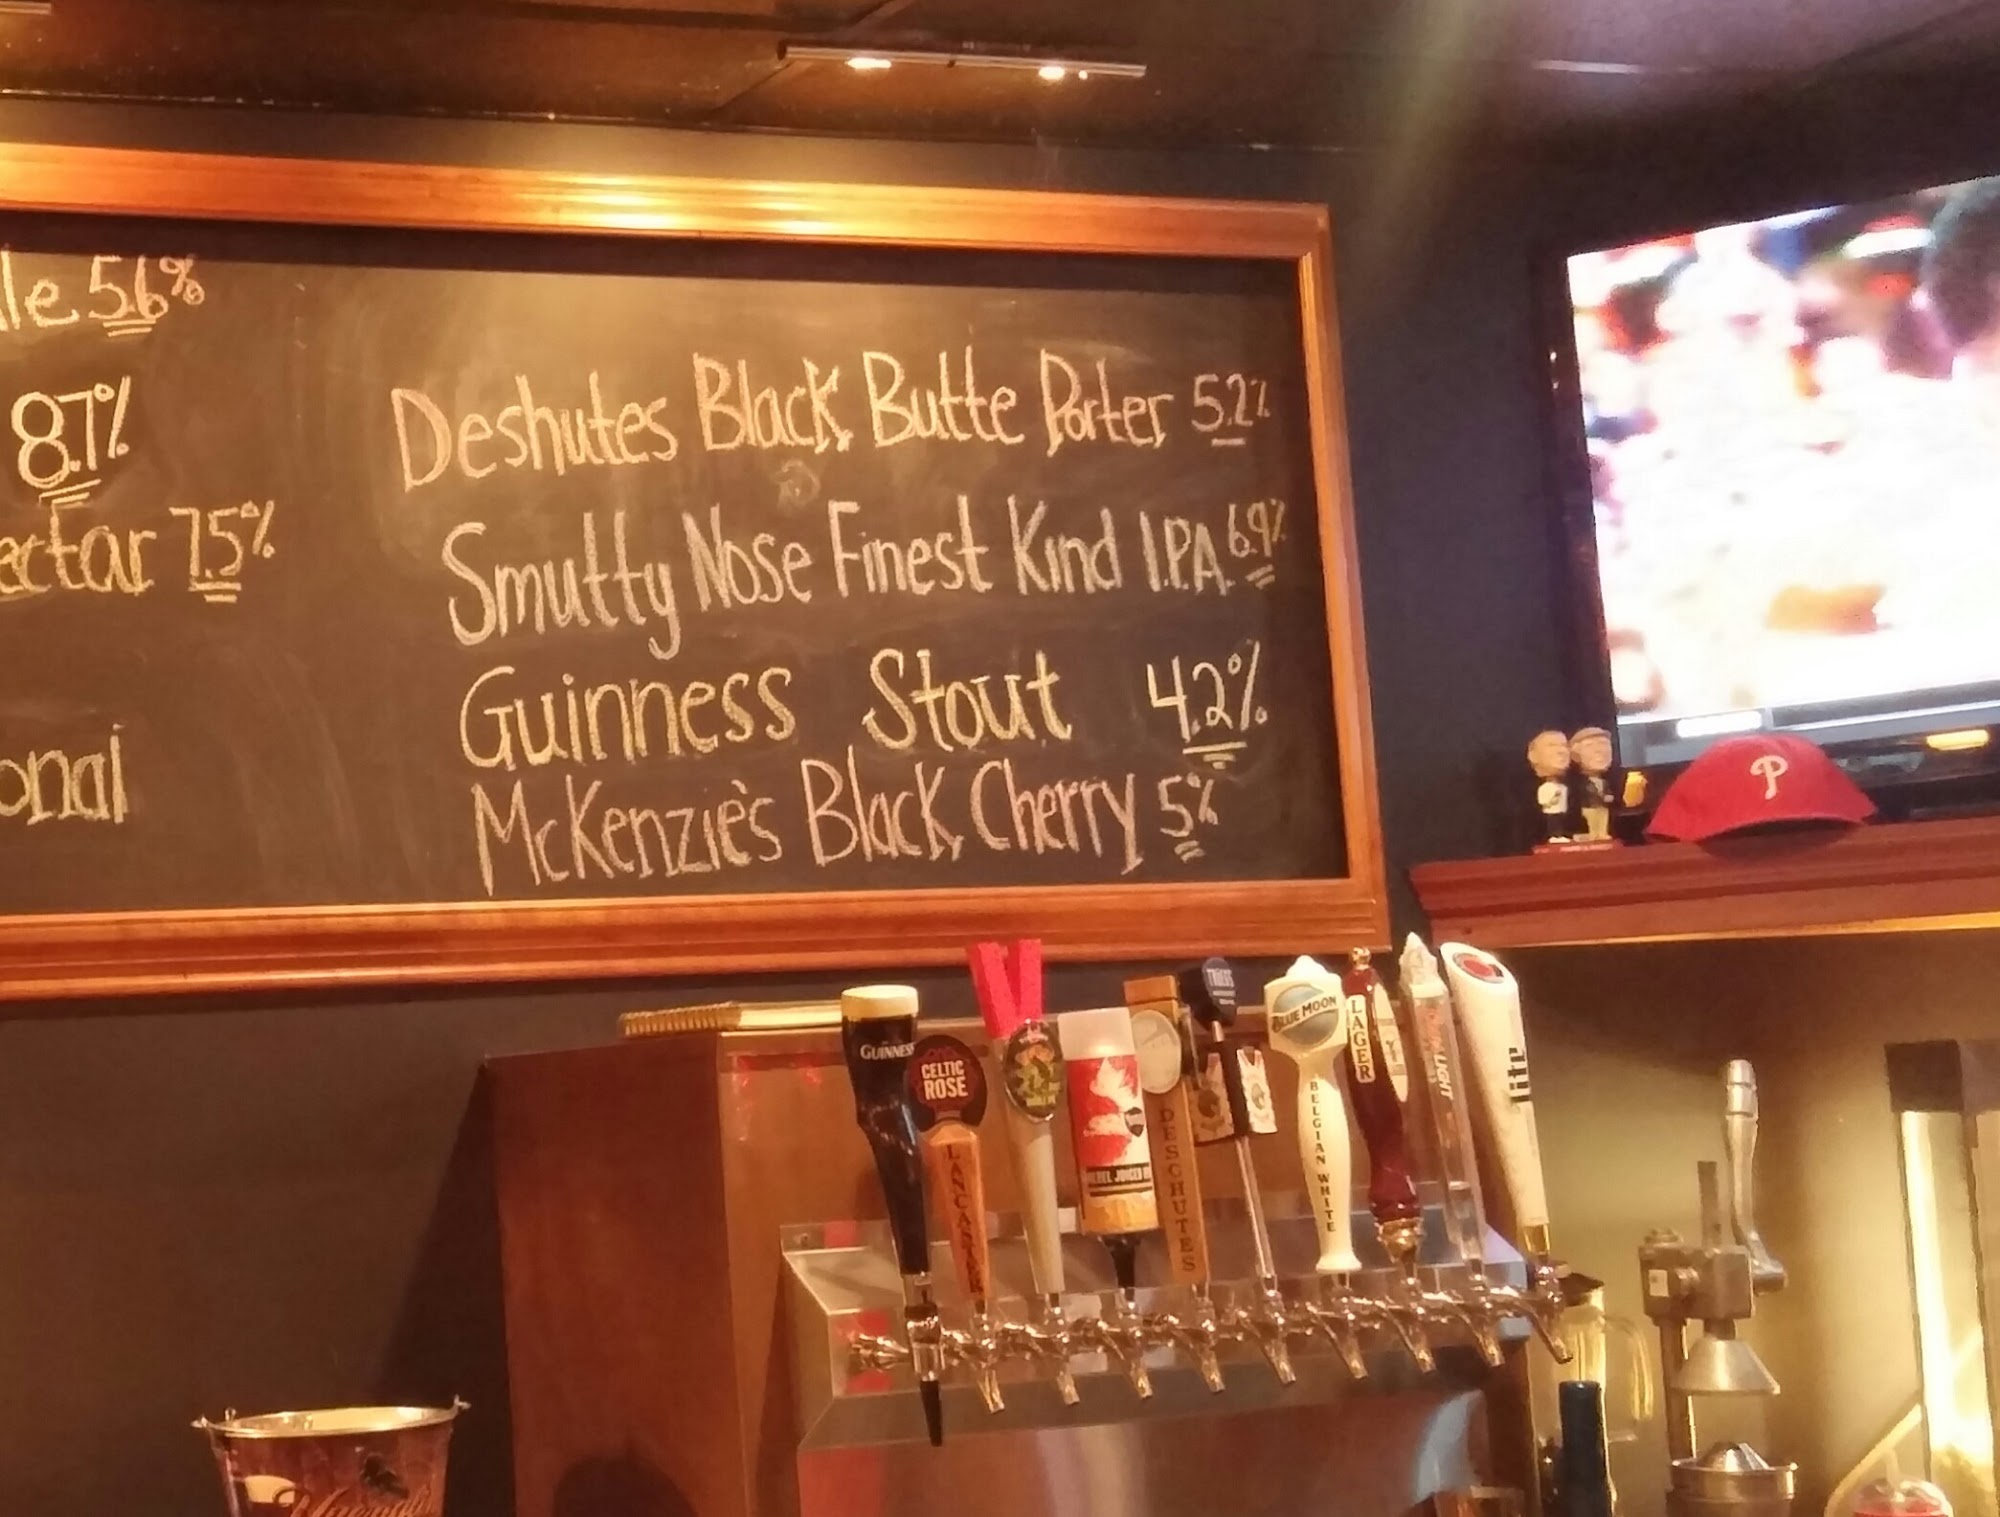 le 5.6%
8.7%
ectar 7.5%
onal
Deshutes Black Butte Porter 5.2%
Smutty Nose Finest Kind I.P.A. 6.9%
Guinness Stout 4.2%
McKenzie's Black Cherry 5%
P
GUINNESS
CELTIC
ROSE
LANCASTER
DESCHUTES
TRÖEGS
BLUE MOON
BELGIAN WHITE
LAGER
LIGHT
lite